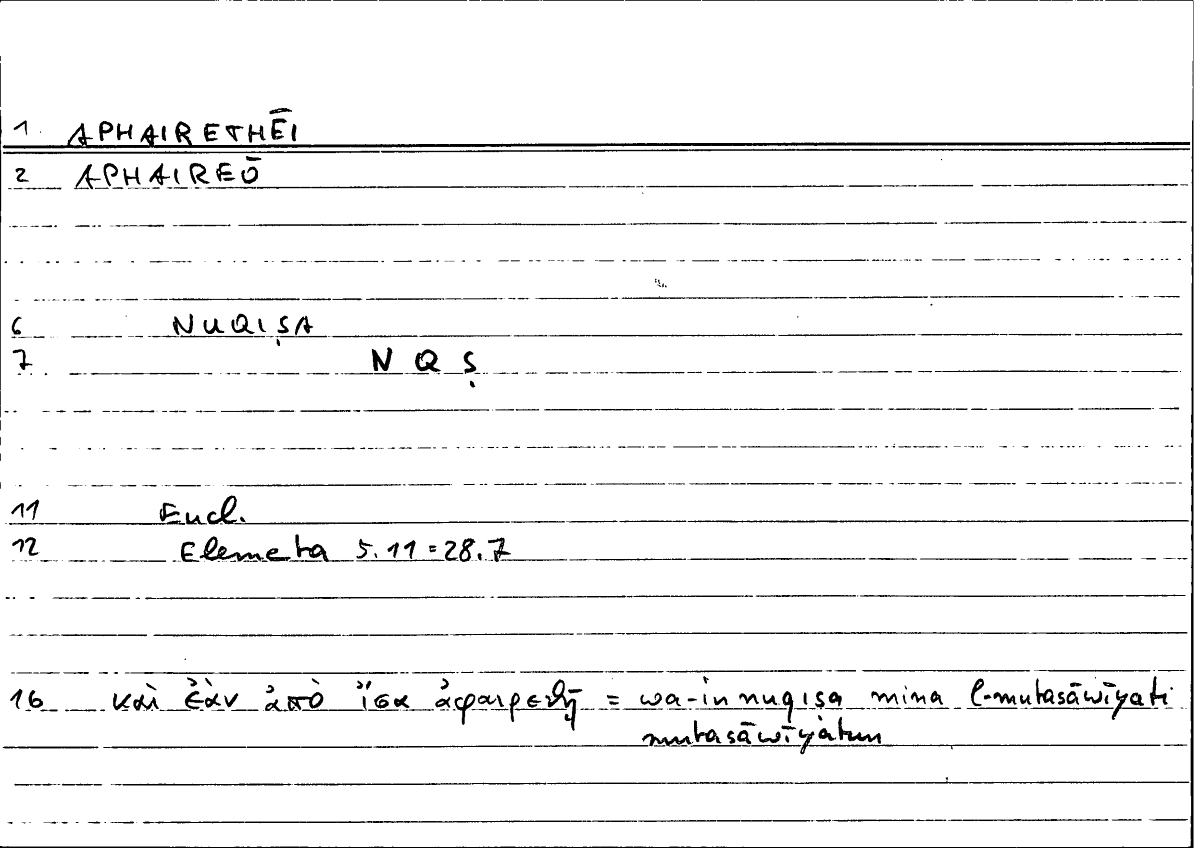 1. APHAIRETHĒI
2 APHAIREŌ
6 NUQIṢA
7 N Q Ṣ
11 Eucl.
12 Elemeta 5.11=28.7
16 καὶ ἐὰν ἀπὸ ἴσα ἀφαιρεθῇ = wa-in nuqiṣa mina l-mutasāwīyati
mutasāwīyatun